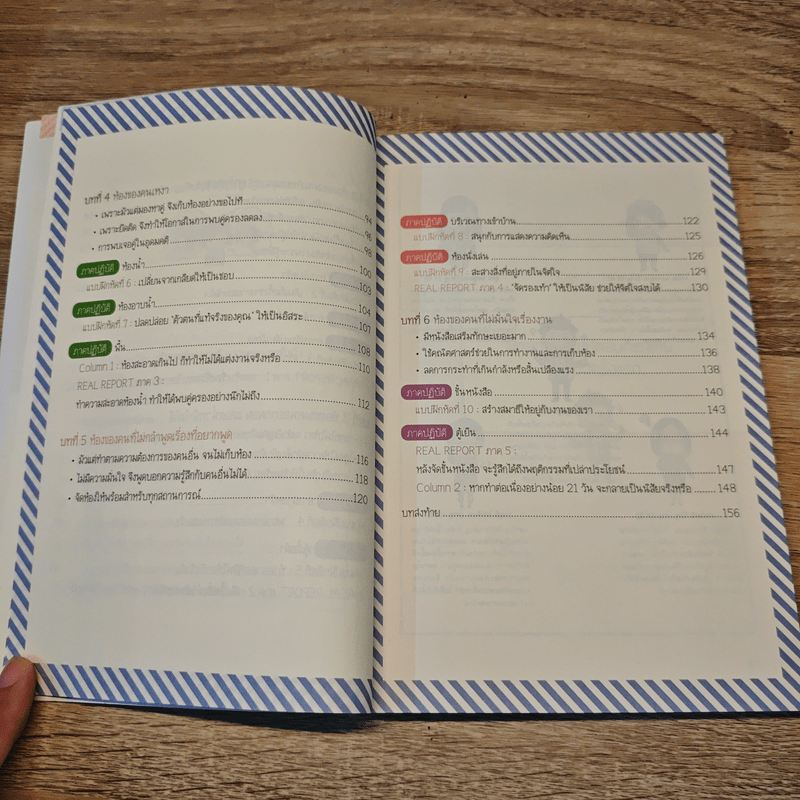 บทที่ 4 ห้องของคนเหงา
• เพราะมัวแต่มองหาคู่ จึงเก็บห้องอย่างขอไปที 94
• เพราะยึดติด จึงทำให้โอกาสในการพบคู่ครองลดลง 96
• การพบเจอคู่ในอุดมคติ 98
ภาคปฏิบัติ ห้องน้ำ 100
แบบฝึกหัดที่ 6 : เปลี่ยนจากเกลียดให้เป็นชอบ 103
ภาคปฏิบัติ ห้องอาบน้ำ 104
แบบฝึกหัดที่ 7 : ปลดปล่อย "ตัวตนที่แท้จริงของคุณ" ให้เป็นอิสระ 107
ภาคปฏิบัติ พื้น 108
Column 1 : ห้องสะอาดเกินไป ก็ทำให้ไม่ได้แต่งงานจริงหรือ 110
REAL REPORT ภาค 3 :
ทำความสะอาดห้องน้ำ ทำให้ได้พบคู่ครองอย่างนึกไม่ถึง 112
บทที่ 5 ห้องของคนที่ไม่กล้าพูดเรื่องที่อยากพูด
• มัวแต่ทำตามความต้องการของคนอื่น จนไม่เก็บห้อง 116
• ไม่มีความมั่นใจ จึงพูดบอกความรู้สึกกับคนอื่นไม่ได้ 118
• จัดห้องให้พร้อมสำหรับทุกสถานการณ์ 120
ภาคปฏิบัติ บริเวณทางเข้าบ้าน 122
แบบฝึกหัดที่ 8 : สนุกกับการแสดงความคิดเห็น 125
ภาคปฏิบัติ ห้องนั่งเล่น 126
แบบฝึกหัดที่ 9 : สะสางสิ่งที่อยู่ภายในจิตใจ 129
REAL REPORT ภาค 4 : "จัดรองเท้า" ให้เป็นนิสัย ช่วยให้จิตใจสงบได้ 130
บทที่ 6 ห้องของคนที่ไม่มั่นใจเรื่องงาน
• มีหนังสือเสริมทักษะเยอะมาก 134
• ใช้คณิตศาสตร์ช่วยในการทำงานและการเก็บห้อง 136
• ลดการกระทำที่เกินกำลังหรือสิ้นเปลืองแรง 138
ภาคปฏิบัติ ชั้นหนังสือ 140
แบบฝึกหัดที่ 10 : สร้างสมาธิให้อยู่กับงานของเรา 143
ภาคปฏิบัติ ตู้เย็น 144
REAL REPORT ภาค 5 :
หลังจัดชั้นหนังสือ จะรู้สึกได้ถึงพฤติกรรมที่เปล่าประโยชน์ 147
Column 2 : หากทำต่อเนื่องอย่างน้อย 21 วัน จะกลายเป็นนิสัยจริงหรือ 148
บทส่งท้าย 156